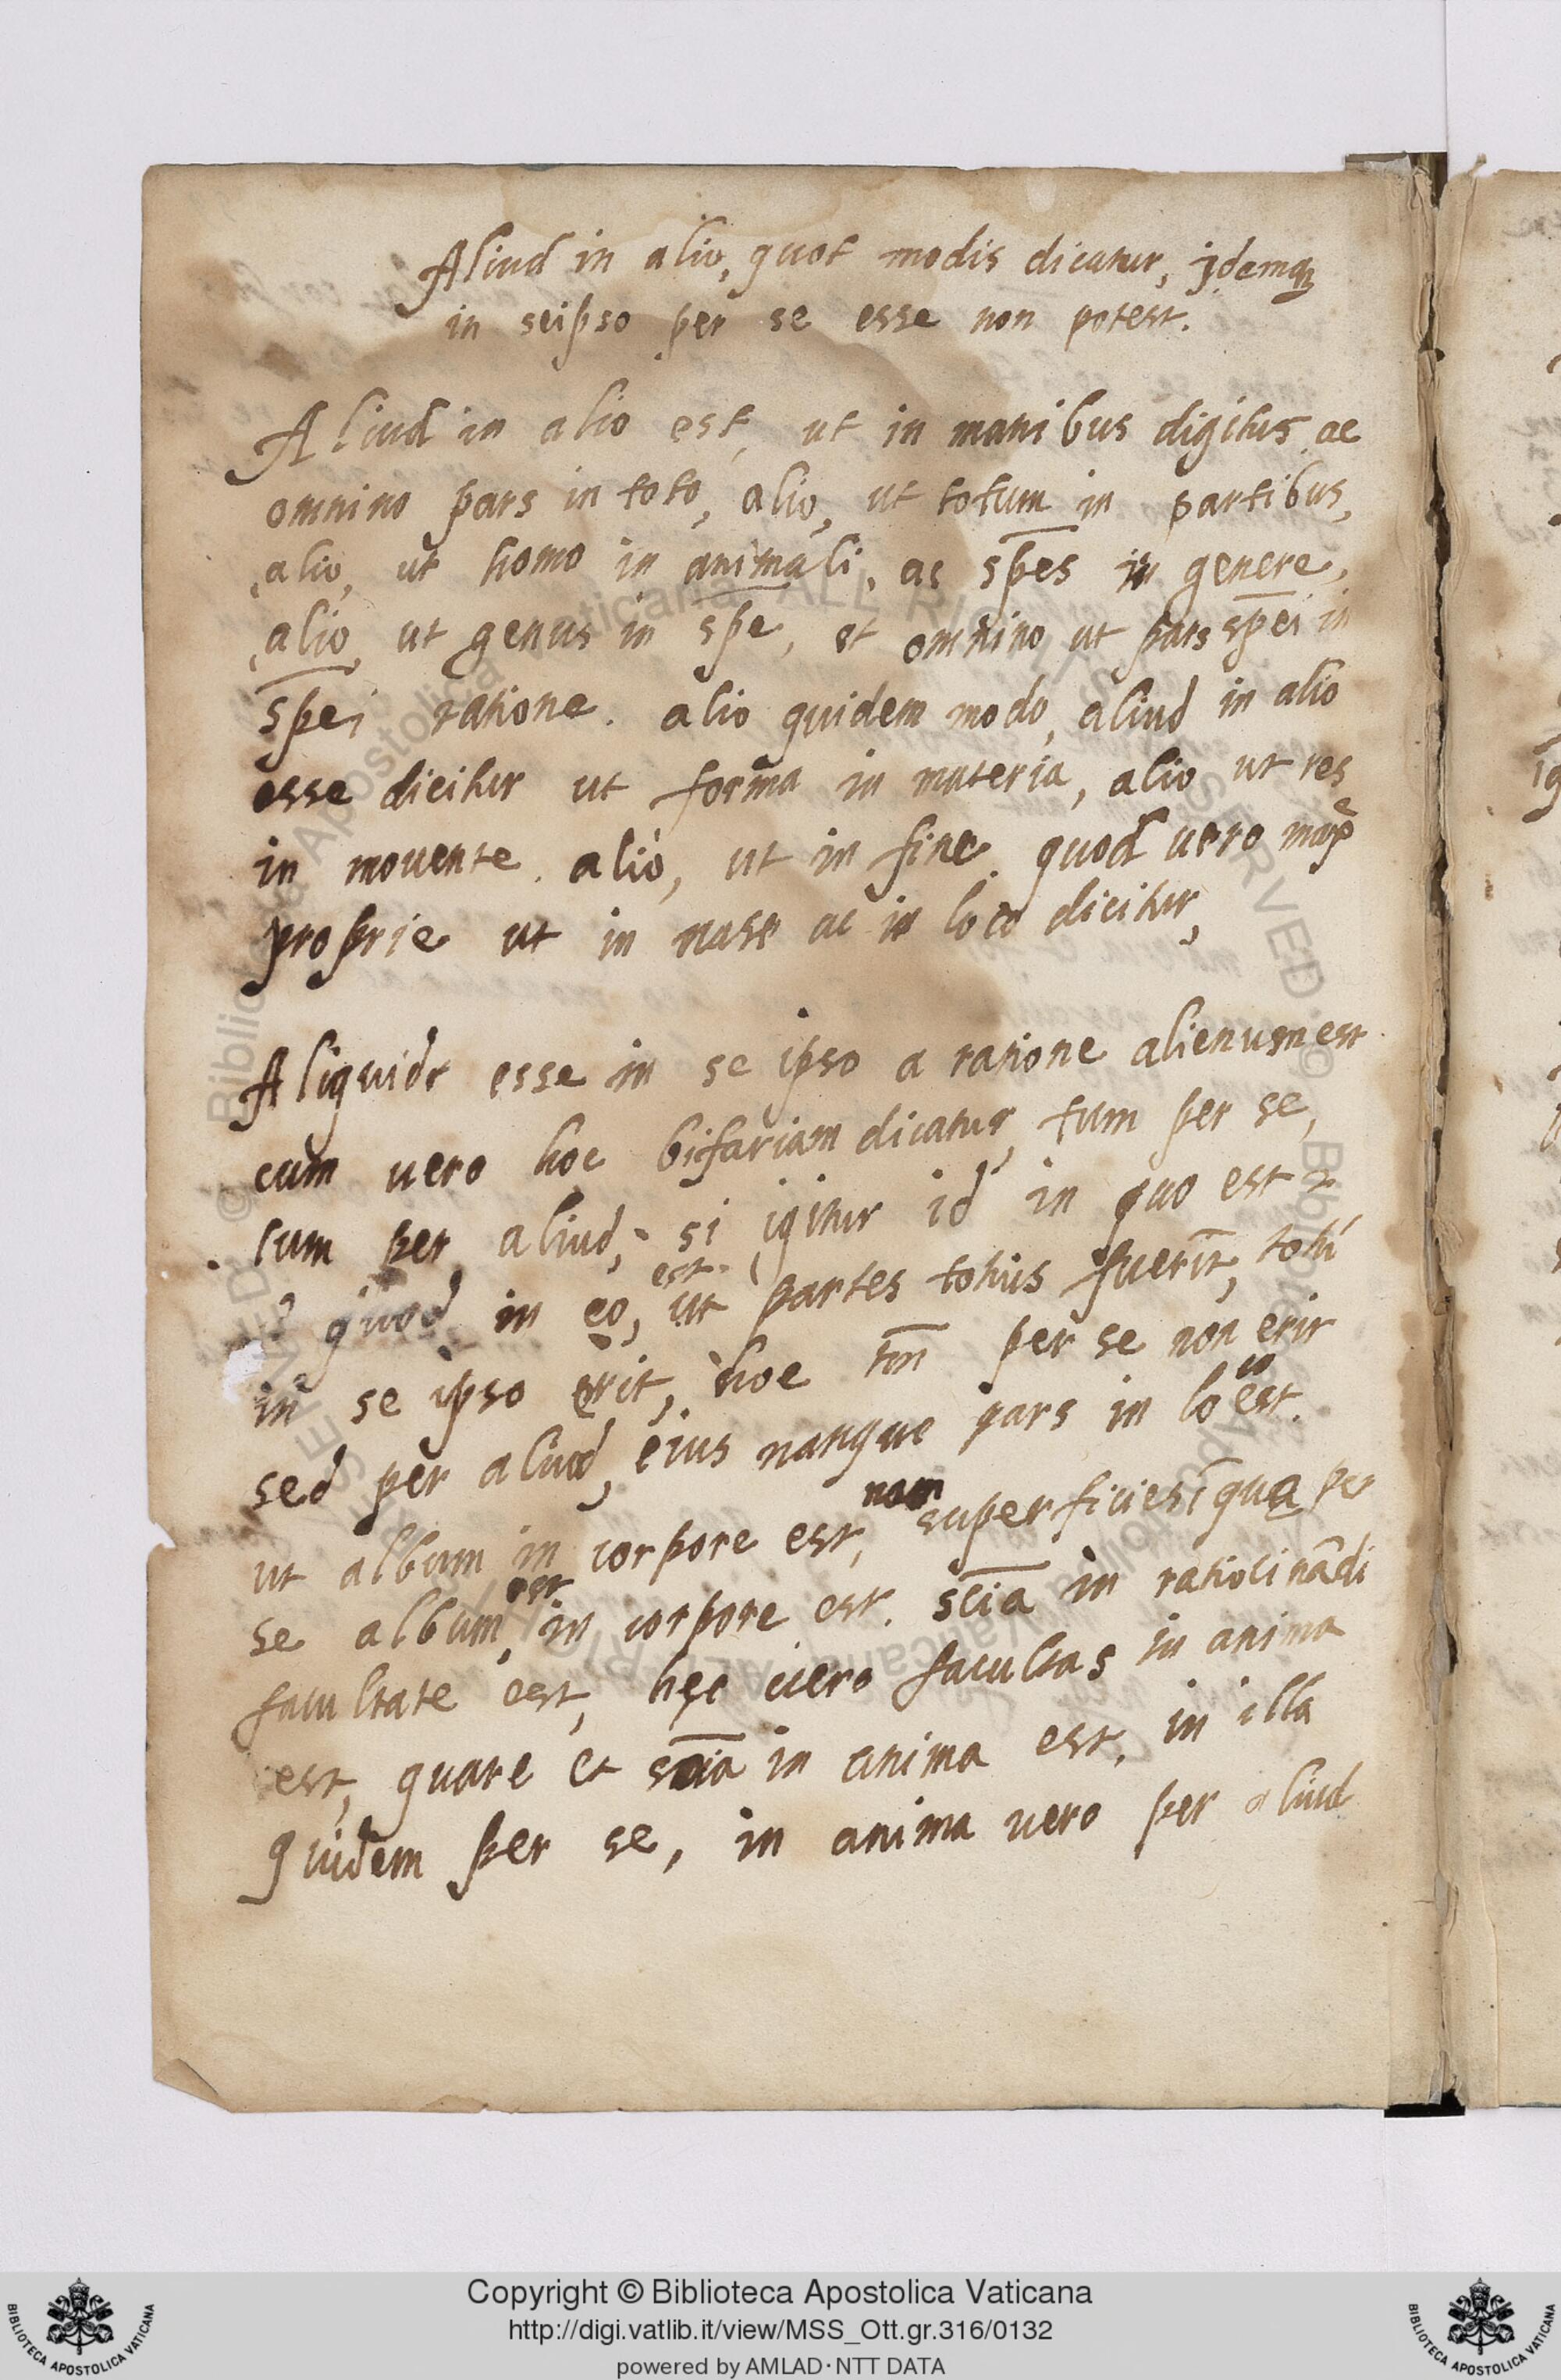 Aliud in alio, quot modis dicatur, jdemqȝ
in seipso per se esse non potest.
Aliud in alio est, ut in manibus digitus, ac
omnino pars in toto, alio, ut totum in partibus,
alio, ut homo in animali, ac sp̅es in genere,
alio, ut genus in sp̅e, et omnino ut pars sp̅ei in
sp̅ei ratione. alio quidem modo, aliud in alio
esse dicitur ut forma in materia, alio ut res
in mouente. alio, ut in fine. quod uero
proprie ut in uase ac in loco dicitur,
Aliquid esse in se ipso a ratione alienum est
cum uero hoc bifariam dicatur, tum per se,
tum per aliud, si igitur id in quo est
quod in eo, est ut partes totius fuerīt,
in se ipso erit, hoc tm̅ per se non erit
sed per aliud, eius nanque pars in loco est.
ut album in corpore est, nam superficies quę per
se album est, in corpore est. scīa in ratiocinādi
facultate est, hęc uero facultas in anima
est, quare et scīa in anima est, in illa
quidem per se, in anima uero per aliud
Copyright © Biblioteca Apostolica Vaticana
http://digi.vatlib.it/view/MSS_Ott.gr.316/0132
powered by AMLAD·NTT DATA
BIBLIOTECA APOSTOLICA VATICANA
BIBLIOTECA APOSTOLICA VATICANA